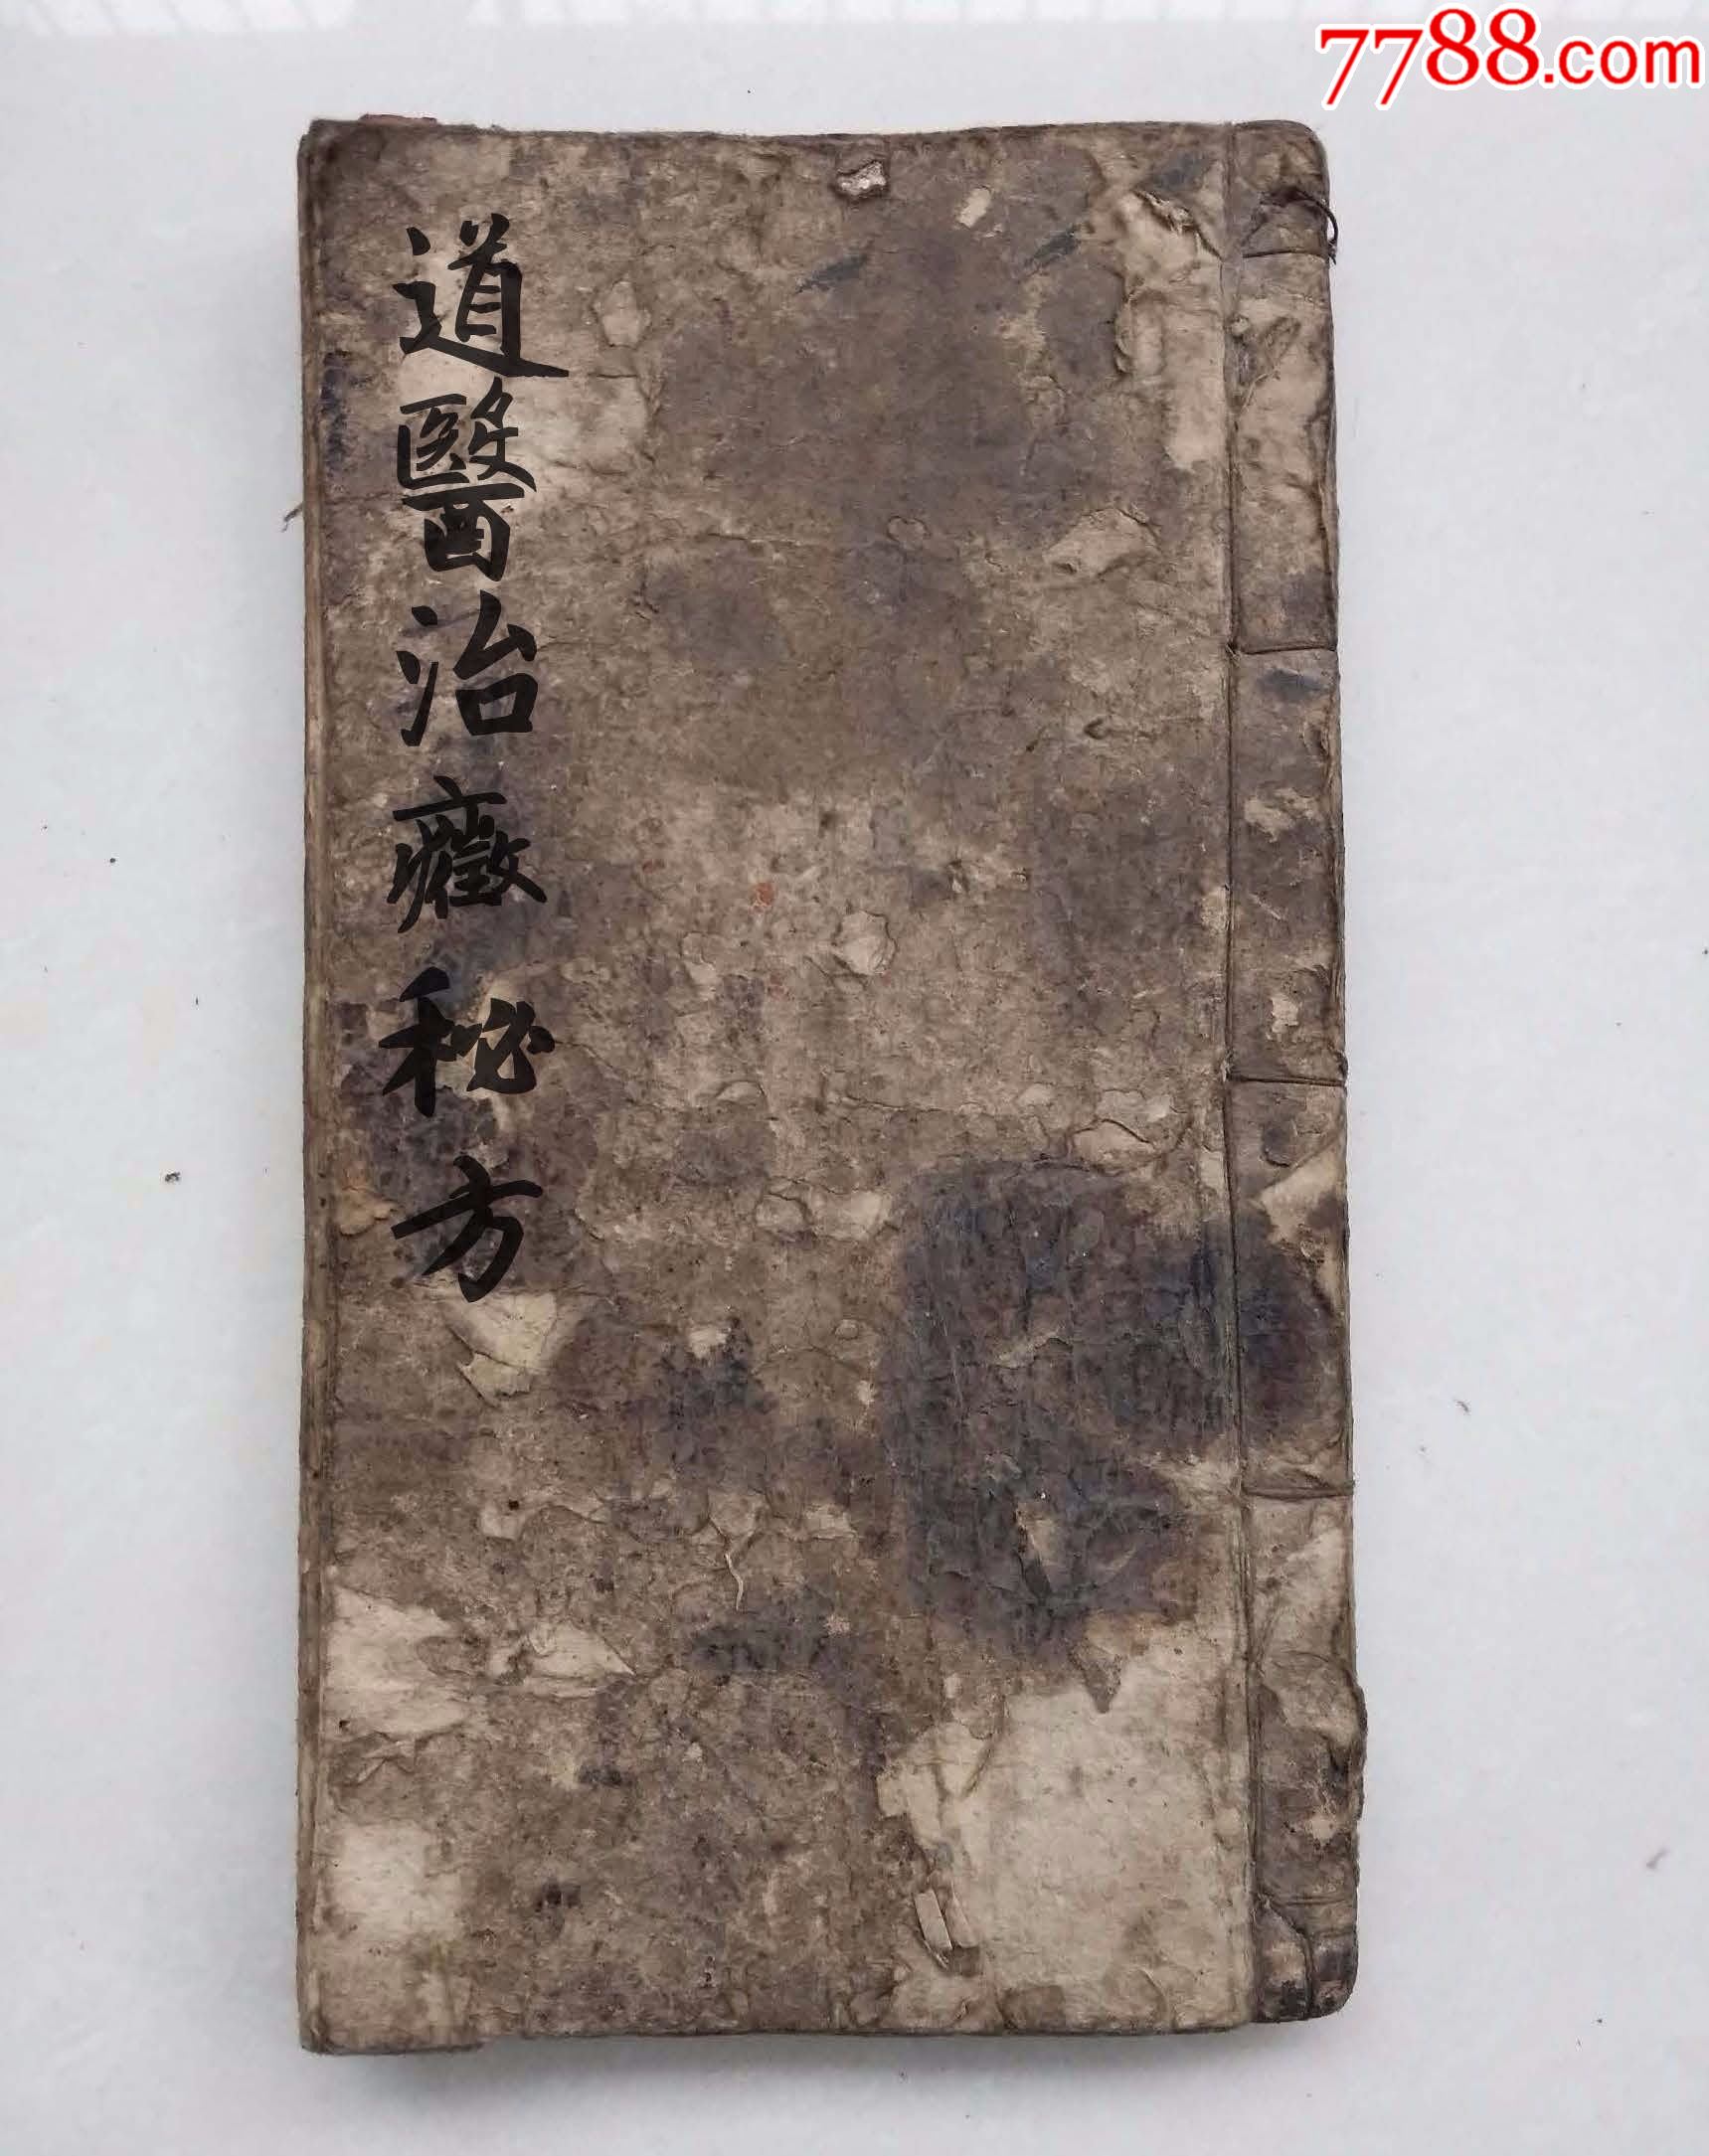 7788.com
道醫治癥秘方